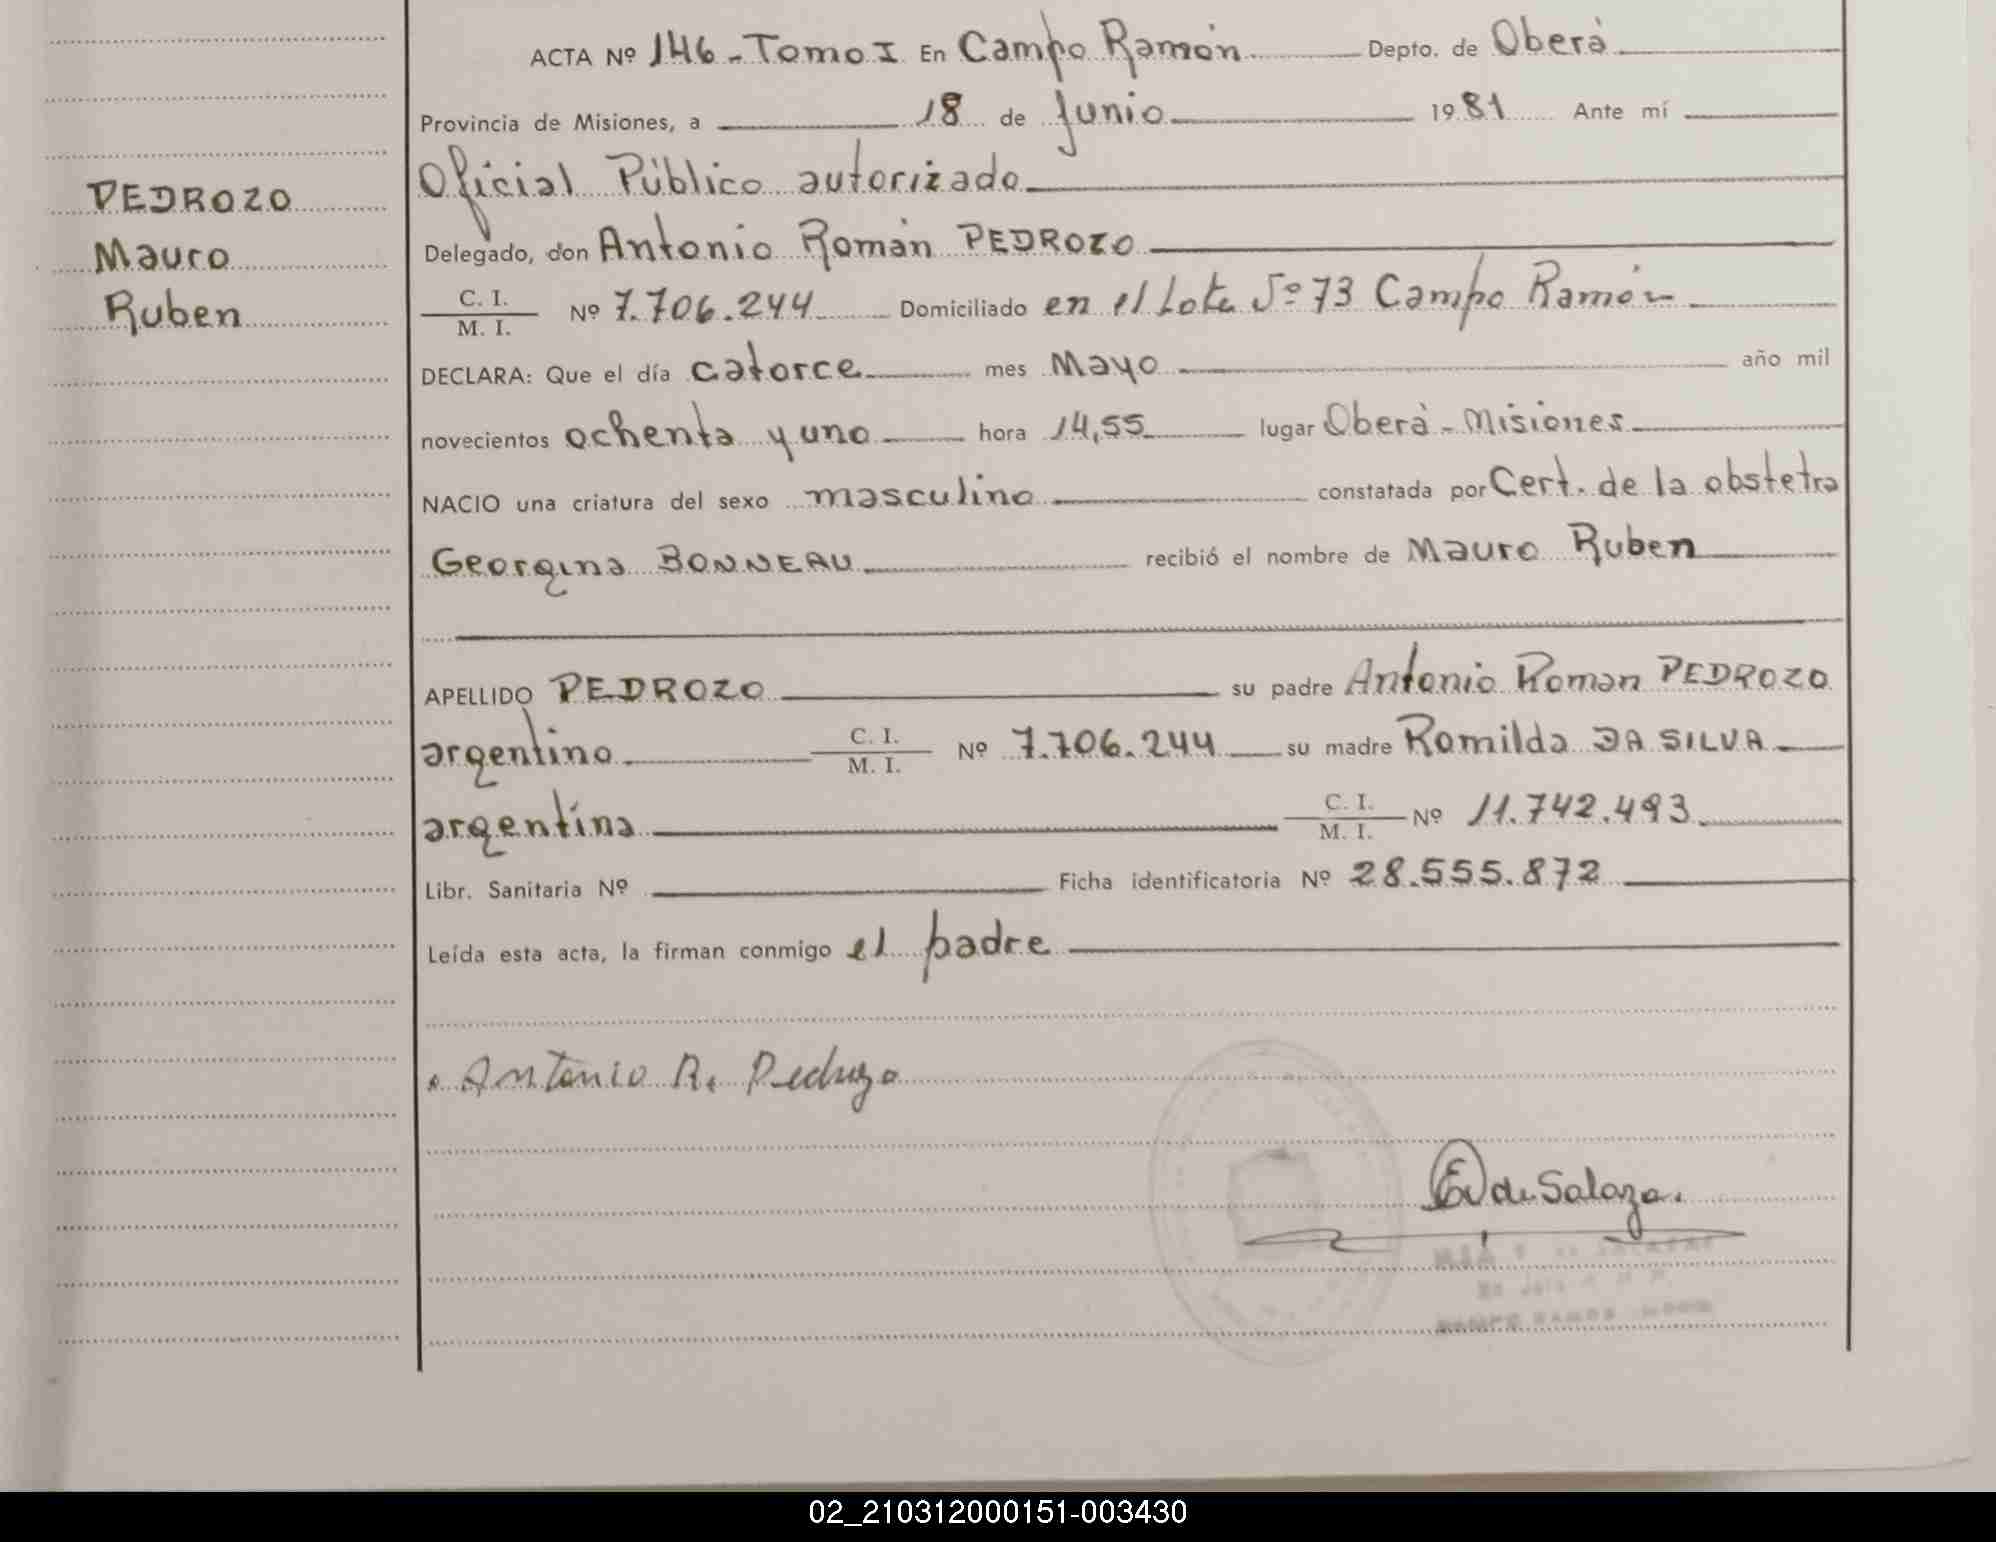 ACTA Nº 146 - Tomo I En Campo Ramón Depto. de Oberá
Provincia de Misiones, a 18 de Junio 1981 Ante mí
Oficial Público autorizado
PEDROZO
Mauro
Ruben
Delegado, don Antonio Román PEDROZO
C. I.
M. I.
Nº 7.706.244 Domiciliado en el Lote Nº 73 Campo Ramón
DECLARA: Que el día catorce mes Mayo año mil
novecientos ochenta y uno hora 14,55 lugar Oberá - Misiones
NACIO una criatura del sexo masculino constatada por Cert. de la obstetra
Georgina BONNEAU recibió el nombre de Mauro Ruben
APELLIDO PEDROZO su padre Antonio Roman PEDROZO
argentino C. I. M. I. Nº 7.706.244 su madre Romilda DA SILVA
argentina C. I. M. I. Nº 11.742.493
Libr. Sanitaria Nº Ficha identificatoria Nº 28.555.872
Leída esta acta, la firman conmigo el padre
Antonio R. Pedrozo
de Salaza.
02_210312000151-003430